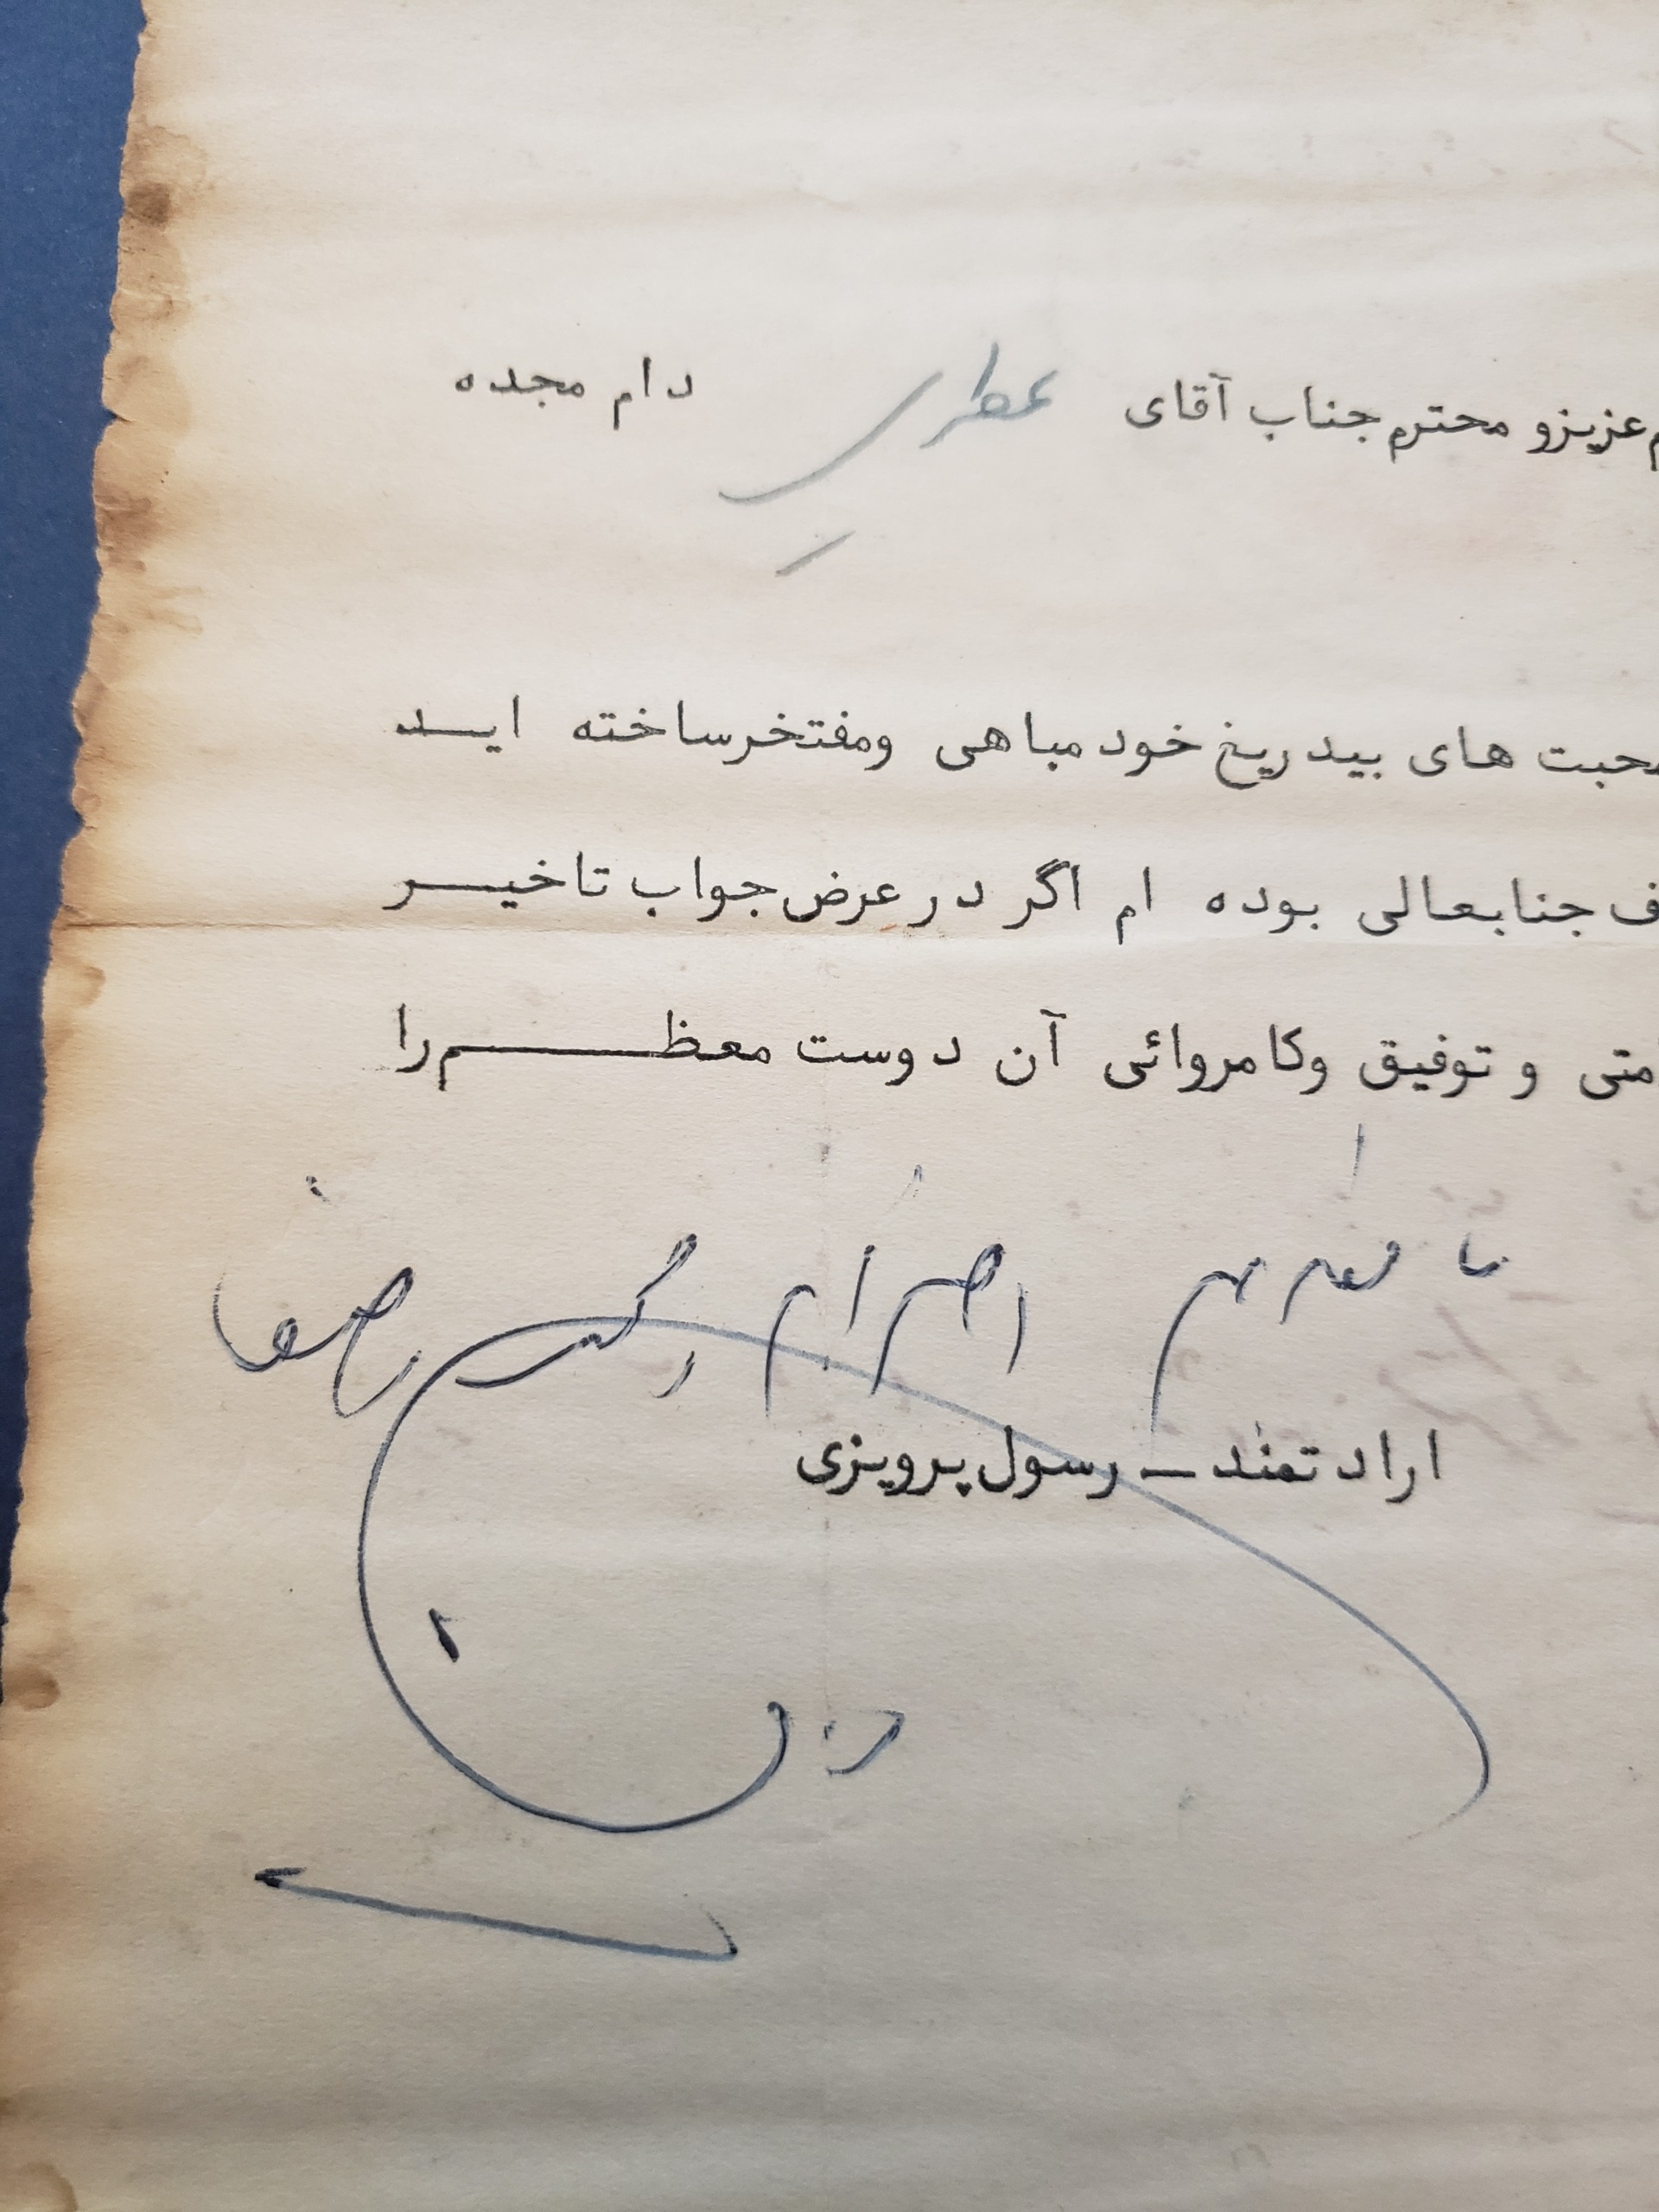 عزیزو محترم جناب آقای عطری دام مجده
محبت های بیدریغ خود مباهی ومفتخرساخته ایــد
جنابعالی بوده ام اگر در عرض جواب تاخیــر
و توفیق وکامروائی آن دوست معظــــم را
با تقدیم احترام
ارادتمند ـ رسول پرویزی